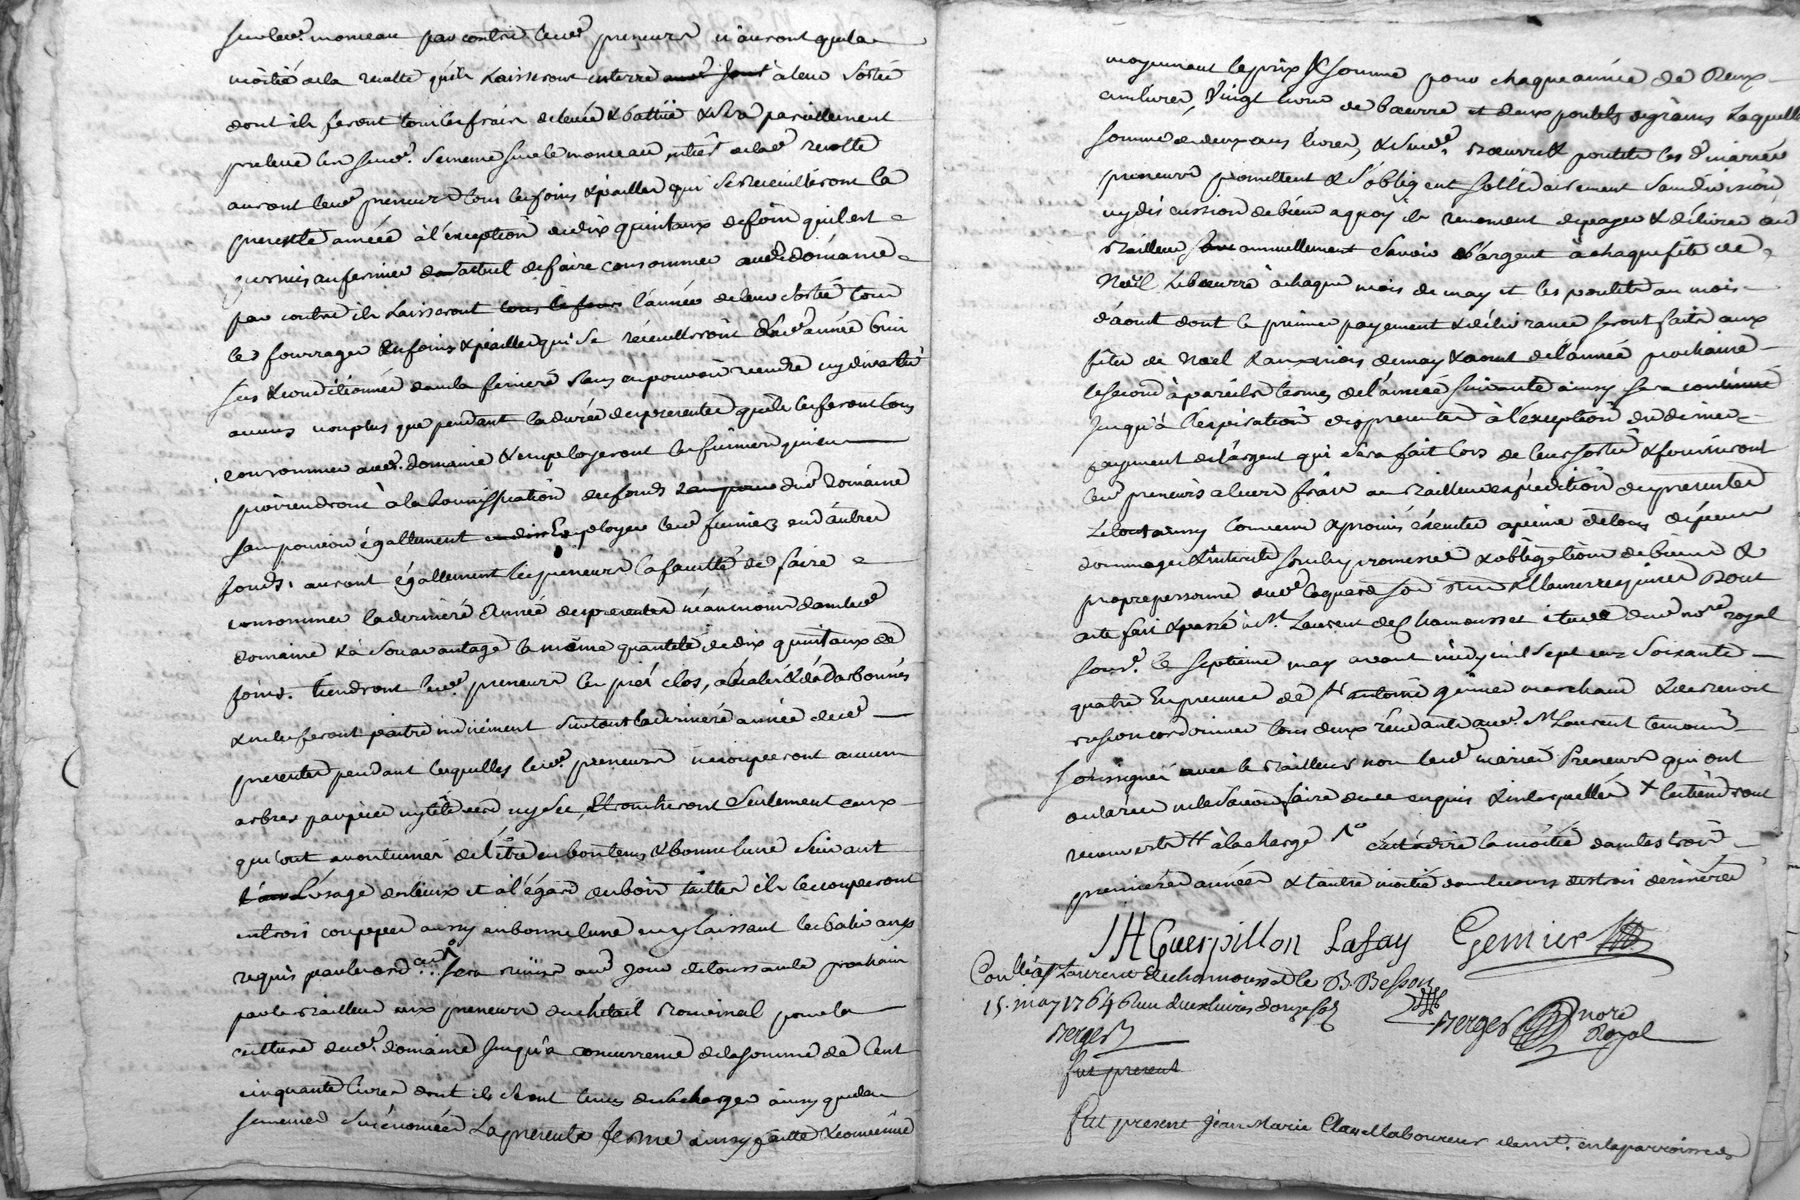 surled. monceau par contre lesd. preneurs n'auront que la
moitié de la recolte qu'ils laisseront enterre à leur sortie
dont ils feront tous les frais de levée & battüe & sera pareillement
prelevé les susd. semence sur le monceau entier de lad. recolte
auront lesd. preneurs tous les foins & pailles qui se recueilliront la
presente année à l'exception de dix quintaux de foin quil est
permis au fermier actuel de faire consommer aud. domaine
par contre ils laisseront l'année de leur sortie tous
les fourrages foins & pailles qui se recueilliront lad. année bien
secs & conditionnés dans la feniere sans en pouvoir vendre ny divertir
aucuns non plus que pendant la durée des presentes qu'ils les feront tous
consommer aud. domaine & employeront les fumiers qui en
proviendront à la bonnification des fonds dud. domaine
sans pouvoir également employer lesd. fumiers en d'autres
fonds. auront également les preneurs la faculté de faire
consommer la derniere année des presentes néanmoins dans led.
domaine & à son avantage la même quantité de dix quintaux de
foins. tiendront lesd. preneurs les prés clos,
& ne les feront paitre surtout la derniere année des
presentes pendant lesquelles lesd. preneurs ne couperont aucuns
arbres par pied ny tête verd ny sec, Ebrancheront seulement ceux
qui ont accoutumés de l'être en bon tems & bonne lune suivant
L'usage des lieux et à l'égard des bois taillis ils les couperont
en trois coupes aussy en bonne lune en y laissant les balivaux
requis par les ord. sera remise aud. jour de toussaints prochain
par le bailleur aux preneurs du chetail pour la
culture dud. domaine jusqu'à concurrence de la somme de Cent
cinquante livres dont ils seront tenus de se charger ainsy que des
semences susénoncées La presente ferme ainsy faitte & convenüe
moyennant le prix & somme pour chaque année de Deux
cent livres, Vingt livres de bœurre et deux poulets de grains Laquelle
somme de deux cens livres, & susd. bœurre & poulets les d. mariés
preneurs promettent & s'obligent sollidairement sans division
ny discussion de biens a quoy ils renoncent de payer & délivrer au
Bailleur annuellement Savoir L'argent à chaque fête de
Noël Le bœurre à chaque mois de may et les poulets au mois
d'aoust dont le premier payement & délivrance seront faits aux
fêtes de Noel & aux mois de may & aoust de l'année prochaine
le second à pareils termes de l'année suivante ainsy sera continué
jusqu'à l'expiration des presentes à l'exception du dernier
payement de l'argent qui sera fait lors de leur sortie & fourniront
lesd. preneurs a leurs frais au Bailleur expédition des presentes
Le tout ainsy convenu & promis éxecuter a peine de tous dépens
dommages & interets sous les promesses & obligations de biens &
propre personne dud. Dont
acte fait & passé à St. Laurent de Chamousset étude dud. nore. royal
soussé. le septieme may avant midy mil sept cens soixante
quatre En presence de sr. antoine genier marchand & de Benoit
cordonnier tous deux résidants aud. St. Laurent temoins
soussignés avec le Bailleur non lesd. mariés Preneurs qui ont
declaré ne le savoir faire de ce enquis & interpellés
# à la charge c'est à dire la moitié dans les trois
premieres années & l'autre moitié dans le cours des trois dernieres
JH Guerpillon Lafay Genier
Conllé à St Laurent de Chamousset le B. Besson
15. may 1764 Reçu deux livres douze sols
Berger
Berger nore Royal
fut present
fut present Jean Marie Clavel laboureur demt. en la parroisse de